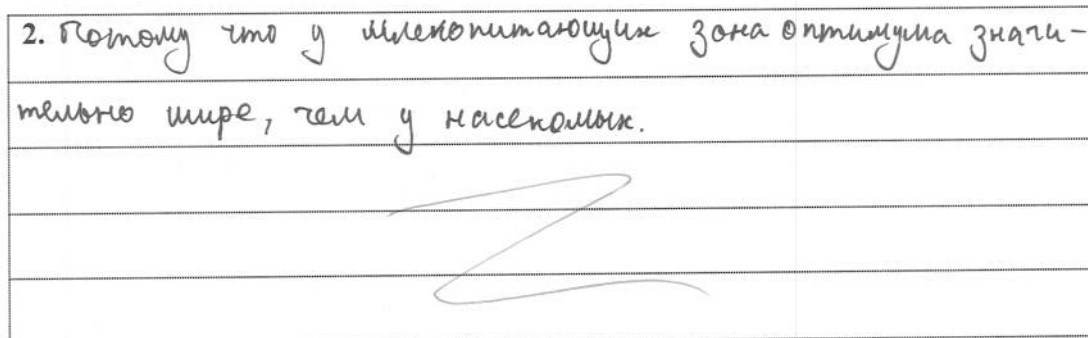 2. Потому что у млекопитающих зона оптимума значи-
тельно шире, чем у насекомых.